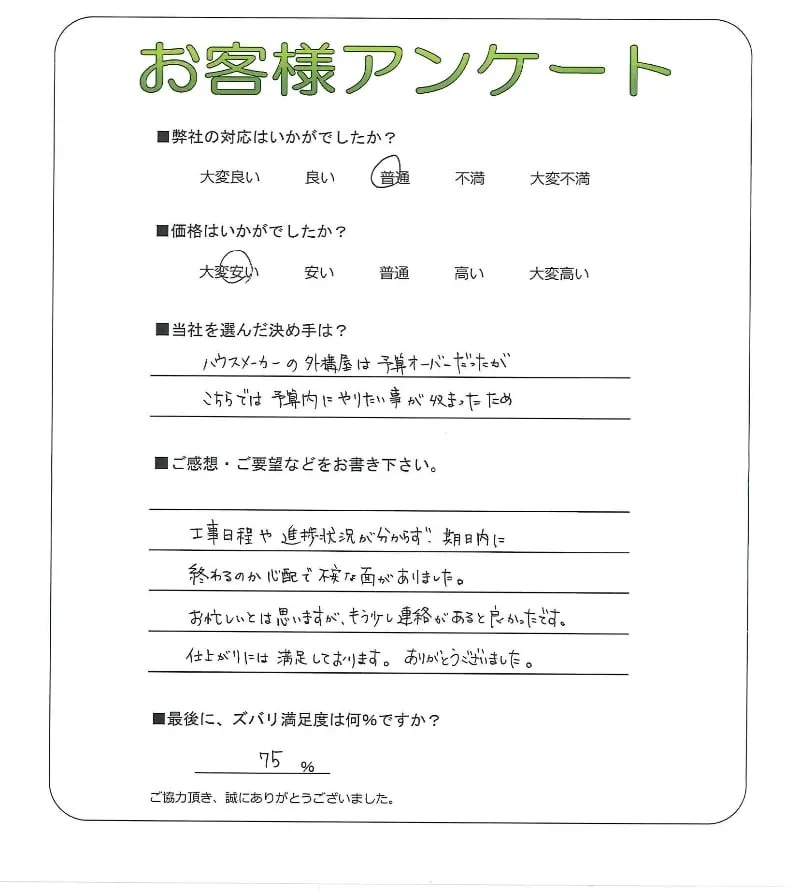 お客様アンケート
■弊社の対応はいかがでしたか？
大変良い 良い 普通 不満 大変不満
■価格はいかがでしたか？
大変安い 安い 普通 高い 大変高い
■当社を選んだ決め手は？
ハウスメーカーの外構屋は予算オーバーだったが
こちらでは予算内にやりたい事が収まったため
■ご感想・ご要望などをお書き下さい。
工事日程や進捗状況が分からず、期日内に
終わるのか心配で不安な面がありました。
お忙しいとは思いますが、もう少し連絡があると良かったです。
仕上がりには満足しております。ありがとうございました。
■最後に、ズバリ満足度は何％ですか？
75 ％
ご協力頂き、誠にありがとうございました。